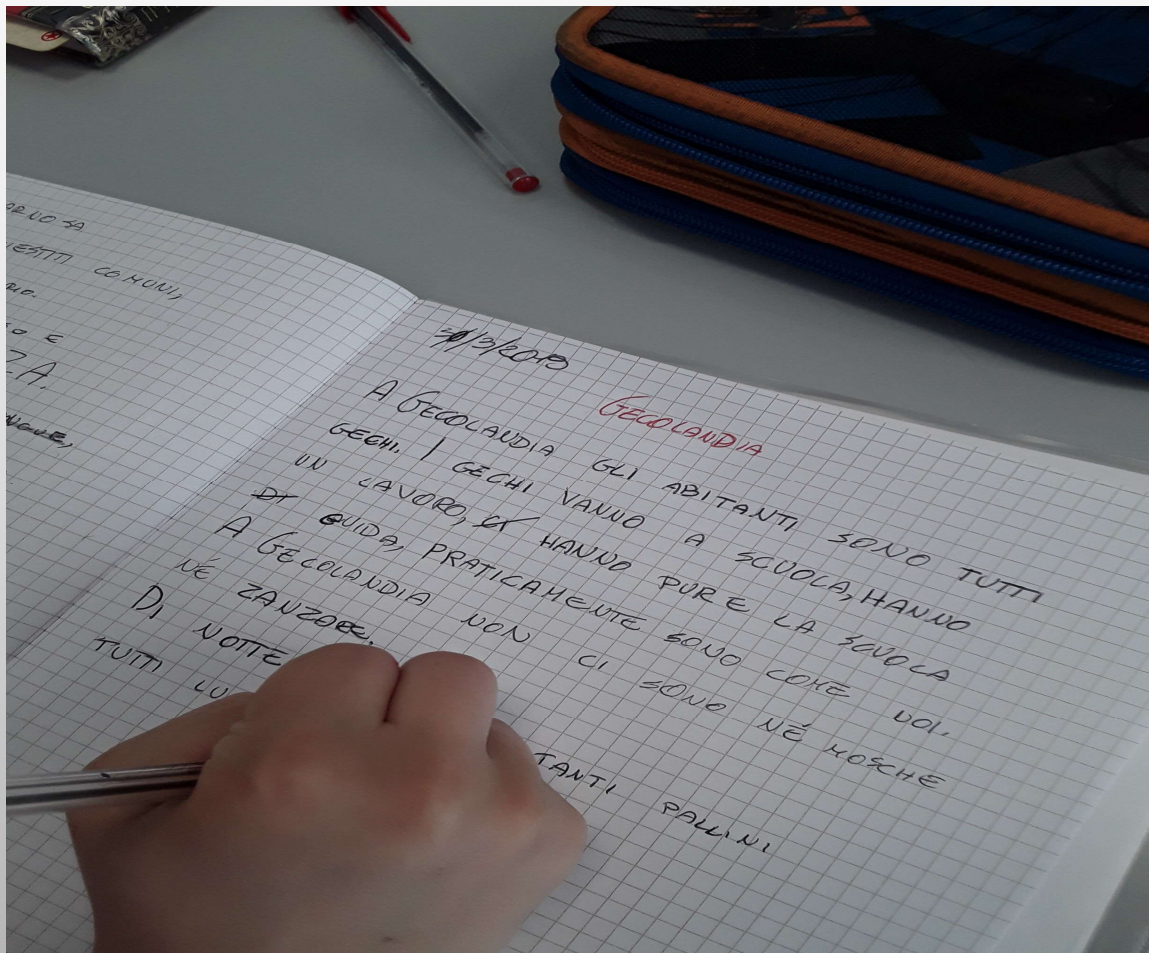 ORNO SA
VESTITI COMUNI,
O E
ZA.
3/2019
GECOLANDIA
A GECOLANDIA GLI ABITANTI SONO TUTTI
GECHI. I GECHI VANNO A SCUOLA, HANNO
UN LAVORO, HANNO PURE LA SCUOLA
DI GUIDA, PRATICAMENTE SONO COME NOI.
A GECOLANDIA NON CI SONO NÉ MOSCHE
NÉ ZANZARE.
DI NOTTE
TUTTI LU TANTI PALLINI